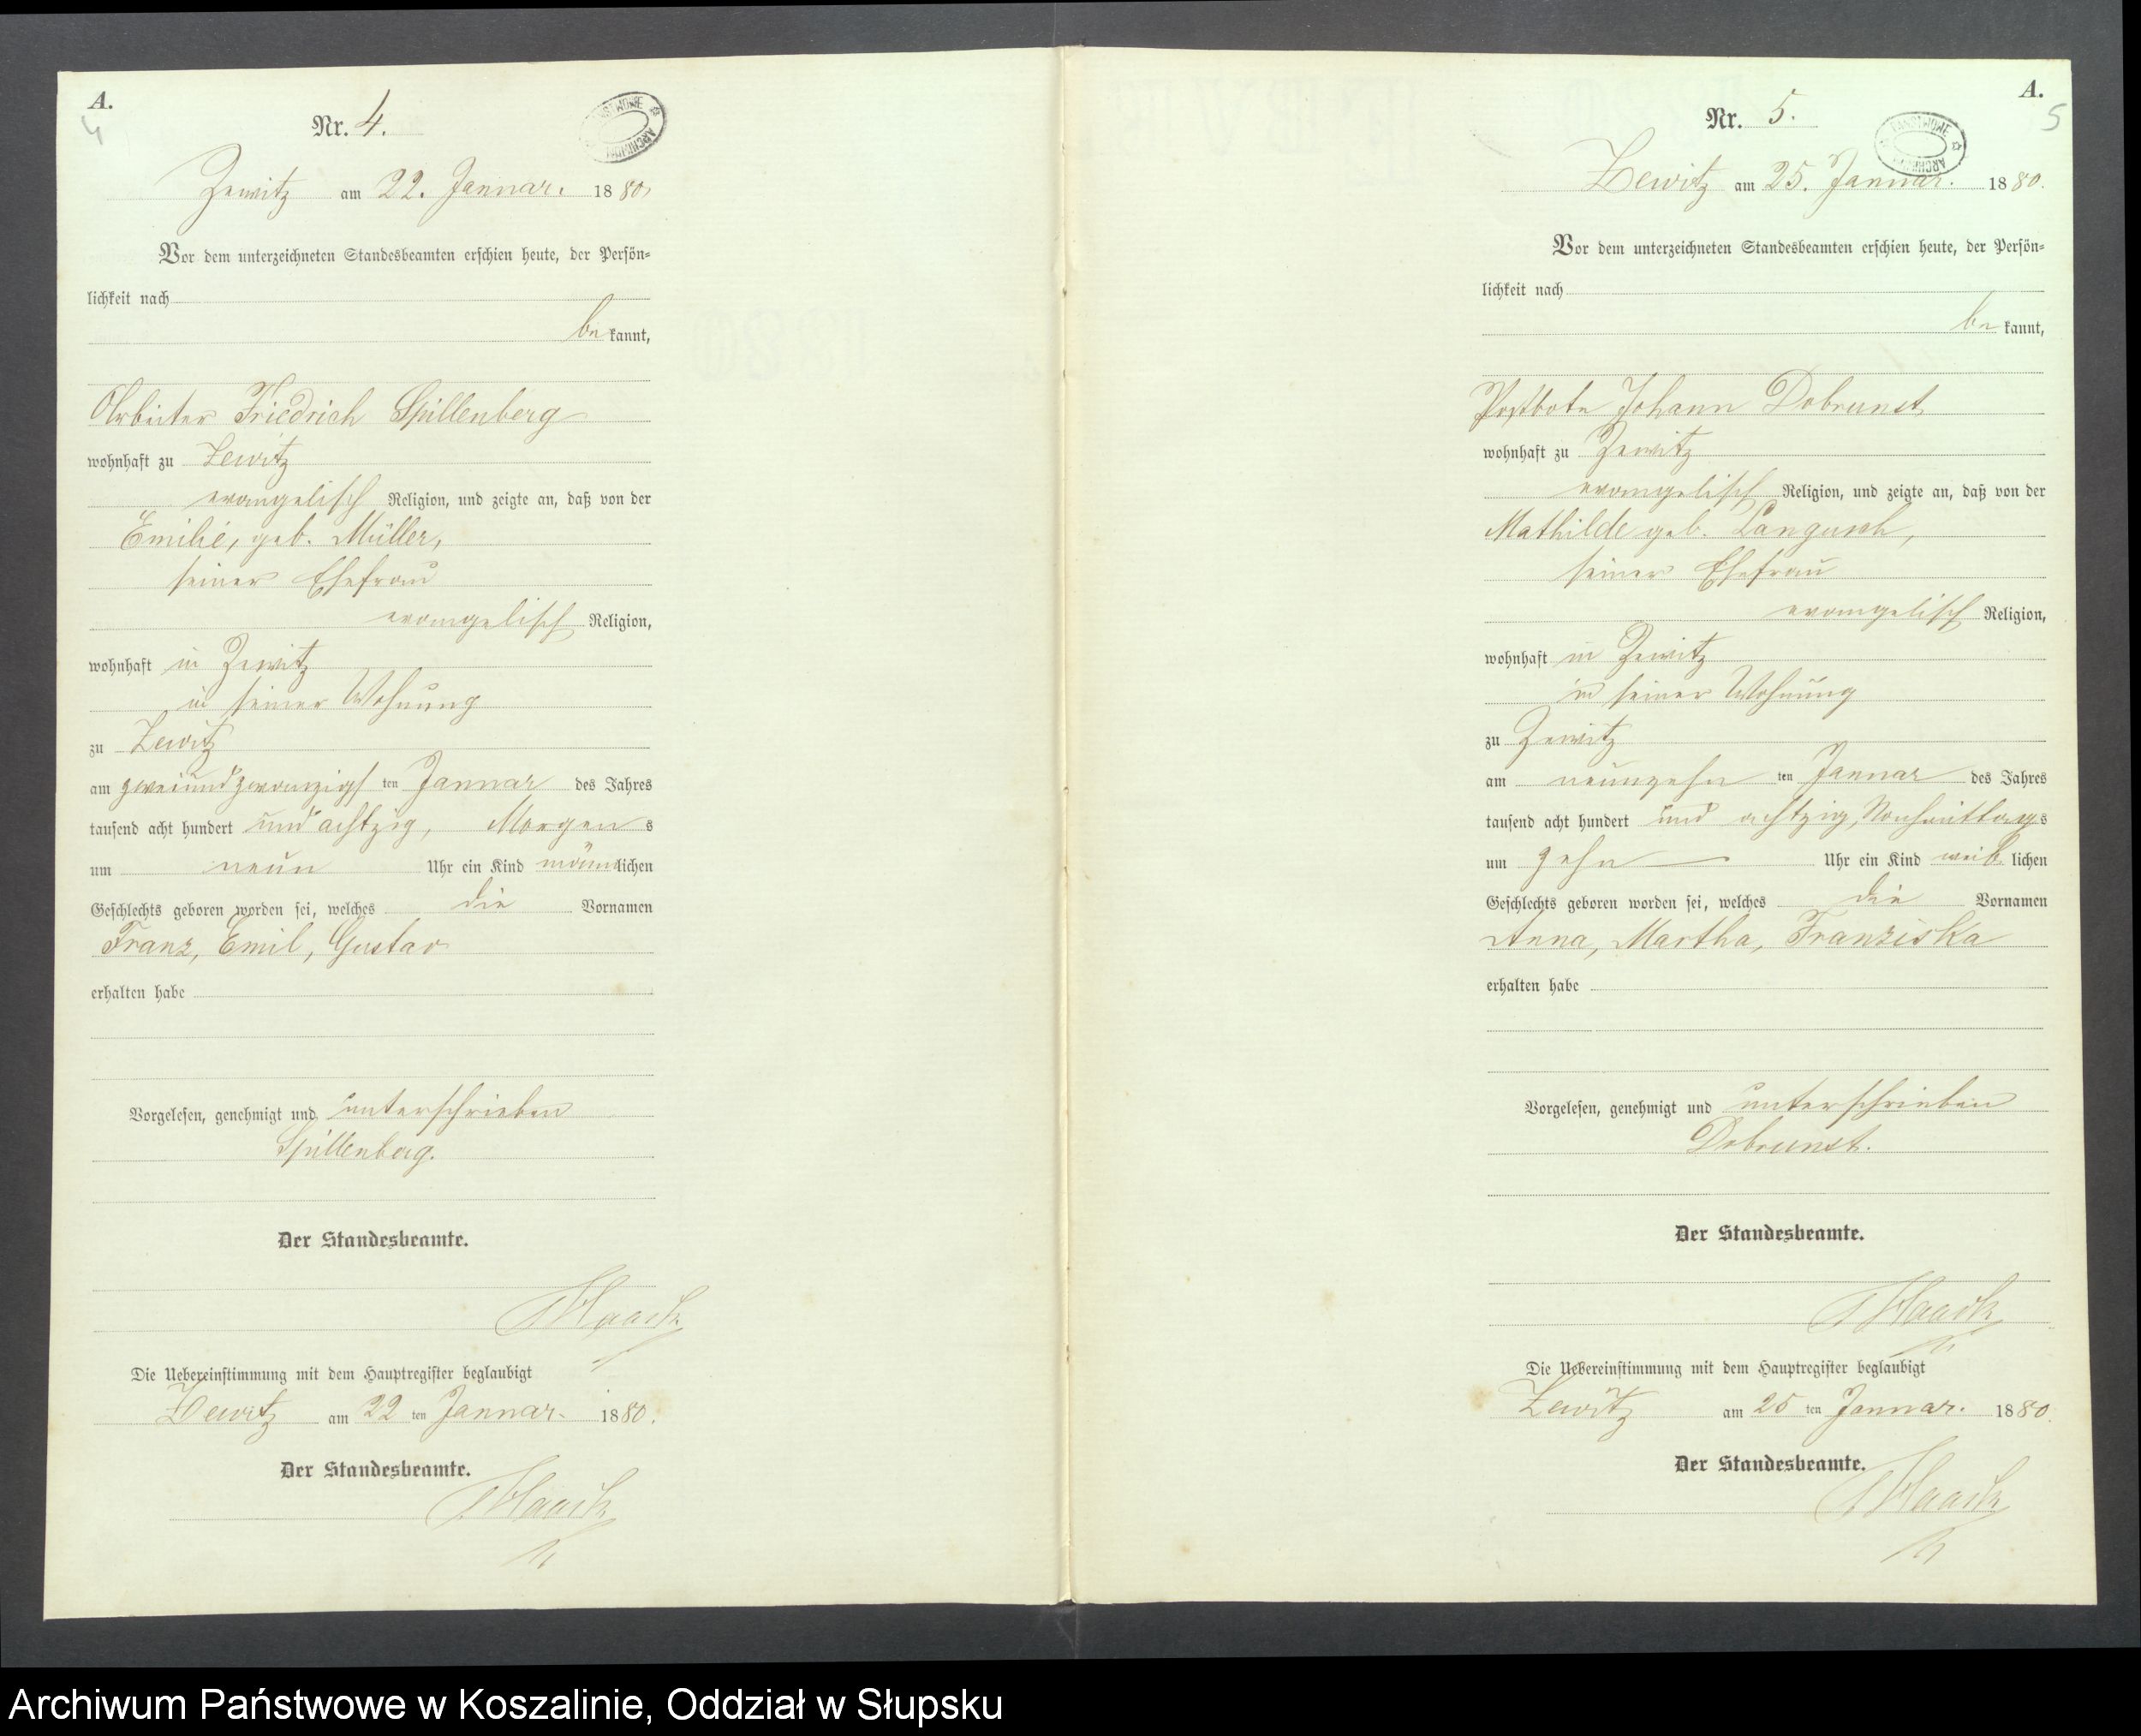 A.
4
Nr. 4.
Zewitz am 22. Januar. 1880,
Vor dem unterzeichneten Standesbeamten erschien heute, der Persön-
lichkeit nach
be kannt,
Arbeiter Friedrich Spillenberg
wohnhaft zu Zewitz
evangelisch Religion, und zeigte an, daß von der
Emilie, geb. Müller,
seiner Ehefrau
evangelisch Religion,
wohnhaft in Zewitz
in seiner Wohnung
zu Zewitz
am zweiundzwanzigsten Januar des Jahres
tausend acht hundert und achtzig, Morgens
um neun Uhr ein Kind männlichen
Geschlechts geboren worden sei, welches die Vornamen
Franz, Emil, Gustav
erhalten habe
Vorgelesen, genehmigt und unterschrieben
Spillenberg.
Der Standesbeamte.
Haack
Die Uebereinstimmung mit dem Hauptregister beglaubigt
Zewitz am 22 ten Januar. 1880.
Der Standesbeamte.
Haack
A.
5
Nr. 5.
PAŃSTWOWE ARCHIWUM
Zewitz am 25. Januar. 1880.
Vor dem unterzeichneten Standesbeamten erschien heute, der Persön-
lichkeit nach
be kannt,
Postbote Johann Dobrunst
wohnhaft zu Zewitz
evangelisch Religion, und zeigte an, daß von der
Mathilde geb.
seiner Ehefrau
evangelisch Religion,
wohnhaft in Zewitz
in seiner Wohnung
zu Zewitz
am neunzehn ten Januar des Jahres
tausend acht hundert und achtzig, Nachmittags
um zehn Uhr ein Kind weib lichen
Geschlechts geboren worden sei, welches die Vornamen
Anna, Martha, Franziska
erhalten habe
Vorgelesen, genehmigt und unterschrieben
Dobrunst.
Der Standesbeamte.
Haack
Die Uebereinstimmung mit dem Hauptregister beglaubigt
Zewitz am 25 ten Januar. 1880.
Der Standesbeamte.
Haack
Archiwum Państwowe w Koszalinie, Oddział w Słupsku